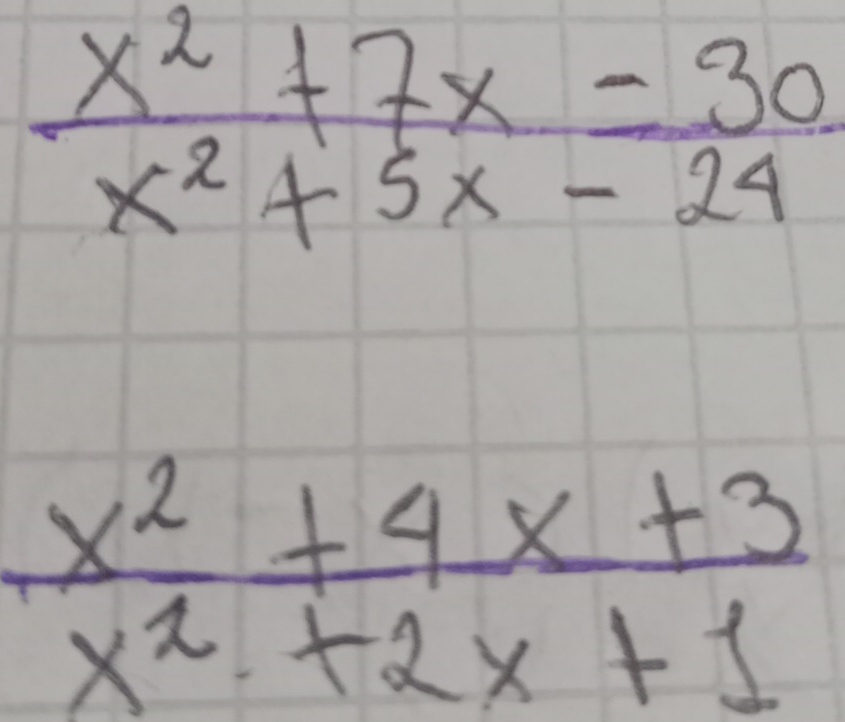 x² + 7x - 30
x² + 5x - 24
x² + 4x + 3
x² + 2x + 1